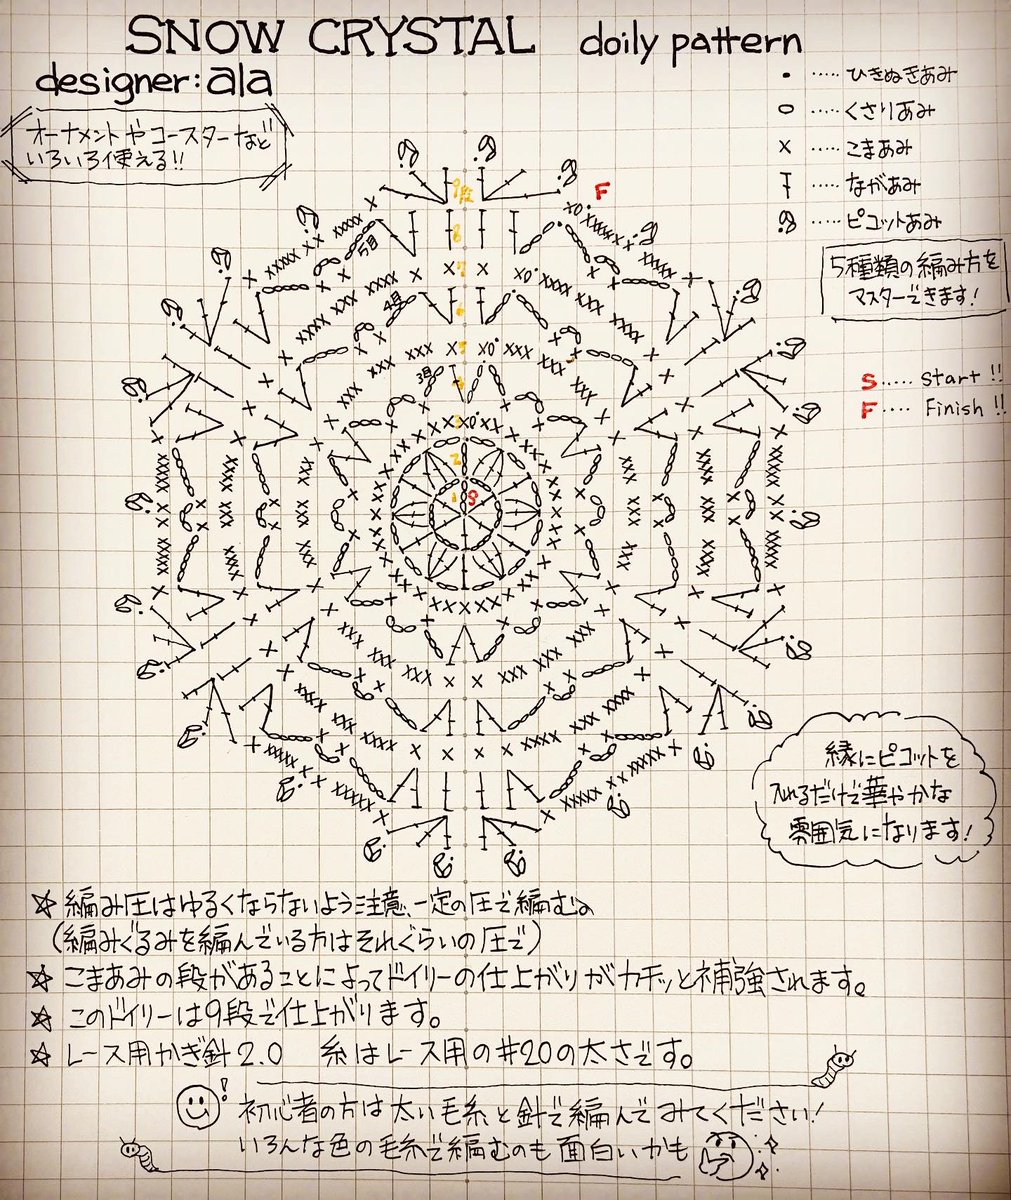 SNOW CRYSTAL doily pattern
designer: ala
オーナメントやコースターなど
いろいろ使える!!
• ····· ひきぬきあみ
○ ····· くさりあみ
× ····· こまあみ
····· ながあみ
····· ピコットあみ
5種類の編み方を
マスターできます!
S ····· Start !!
F ···· Finish !!
F
9段
8
7
6
5
4
3
2
1
S
5目
4目
3目
縁にピコットを
入れるだけで華やかな
雰囲気になります!
☆ 編み圧はゆるくならないよう注意、一定の圧で編む。
(編みぐるみを編んでいる方はそれぐらいの圧で)
☆ こまあみの段があることによってドイリーの仕上がりがカチッと補強されます。
☆ このドイリーは9段で仕上がります。
☆ レース用かぎ針2.0 糸はレース用の#20の太さです。
初心者の方は太い毛糸と針で編んでみてください!
いろんな色の毛糸で編むのも面白いかも